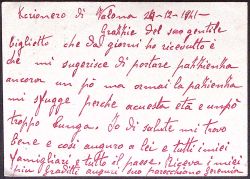 Kcionero di Valona 24-12-1941-
Grathie del suo gentile
biglietto che da giorni ho ricevuto è
che mi sugerisce di portare pakhienha
ancora un pò ma ormai la pakhienha
mi sfugge perche acuesta età e un pò
troppo lunga. Io di salute mi trovo
bene e così auguro a lei e tutti i miei
famigliari e tutto il paese. Riceva i miei
più graditti auguri suo parocchiano Geremia